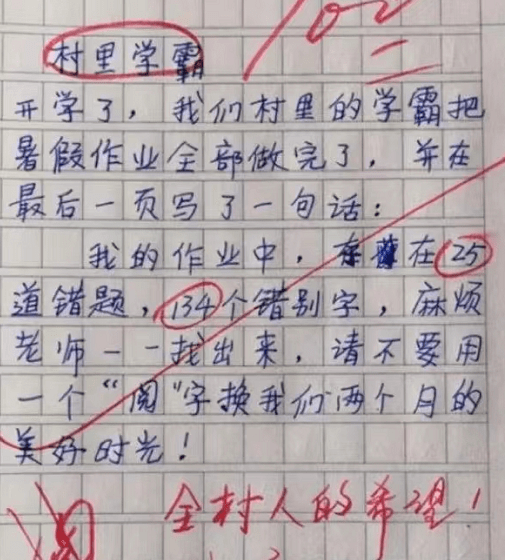 村里学霸
开学了，我们村里的学霸把
暑假作业全部做完了，并在
最后一页写了一句话：
我的作业中，存在25
道错题，134个错别字，麻烦
老师一一找出来，请不要用
一个“阅”字换我们两个月的
美好时光！
全村人的希望！
阅